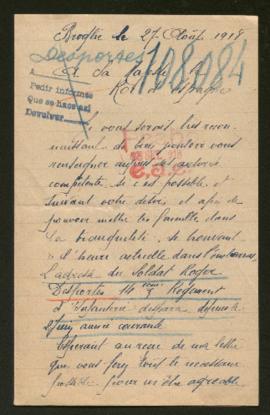 Broglie le 27 Août 1918
Desportes 108084
A Sa
Roi d'Espagne
Pedir informes
Que se hace asi
Devolver
vous serais bien recon-
naissant de bien vouloir vous
renseigner auprès des autorités
compétente, si c'est possible, et
suivant votre désir, et afin de
pouvoir mettre la famille dans
la tranquilité, se trouvant
à l'heure actuelle dans l'
L'adresse du Soldat Roger
Desportes 14 eme Regiment
d'Infanterie disparu depuis le
Juin année courante
Espérant au reçu de ma lettre
que vous ferez tout le nécessaire
possible pour m'être agréable